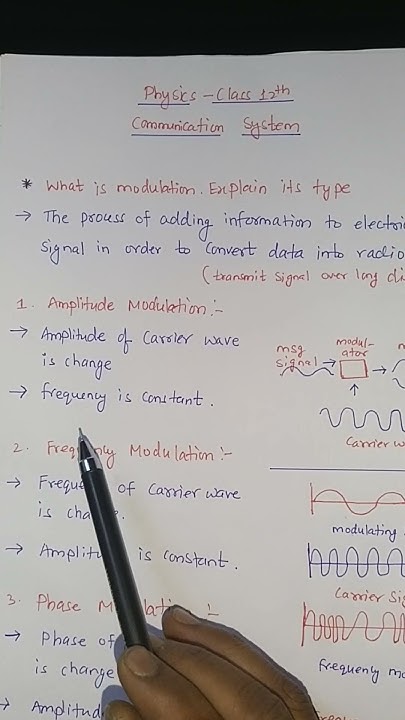 Physics - Class 12th
Communication System
* What is modulation. Explain its type
→ The process of adding information to
signal in order to convert data into radio
(transmit signal over long
1. Amplitude Modulation:-
→ Amplitude of Carrier wave
is change
→ frequency is constant.
msg
signal
modul-
ator
Carrier
2. Modulation:-
→ of Carrier wave
is
→ is constant.
modulating
Carrier
3. Phase
→ Phase of
is change
frequenly
→